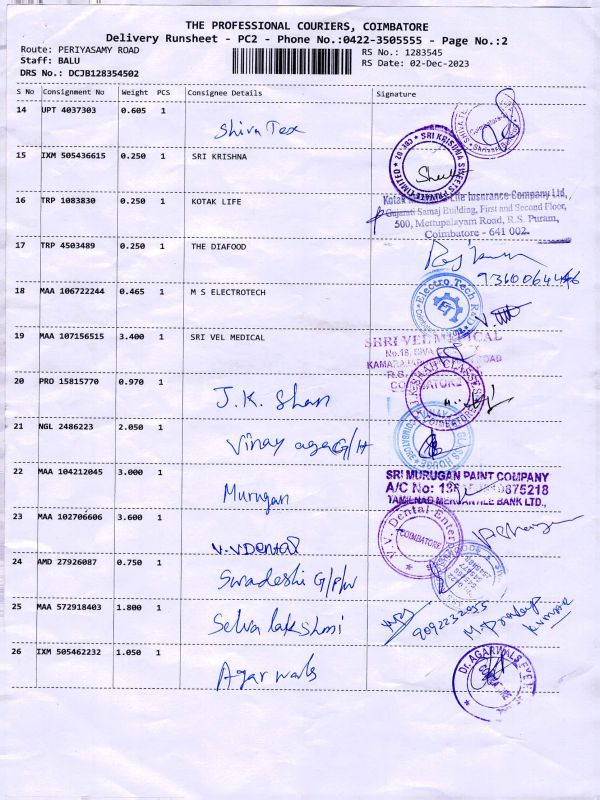 THE PROFESSIONAL COURIERS, COIMBATORE
Delivery Runsheet - PC2 - Phone No.:0422-3505555 - Page No.:2
Route: PERIYASAMY ROAD
RS No.: 1283545
Staff: BALU
RS Date: 02-Dec-2023
DRS No.: DCJB128354502
S No Consignment No Weight PCS Consignee Details Signature
14 UPT 4037303 0.605 1
Shiva Tex
15 IXM 505436615 0.250 1 SRI KRISHNA
SRI KRISHNA SWEETS PRIVATE LIMITED
16 TRP 1083830 0.250 1 KOTAK LIFE
Kotak Life Insurance Company Ltd.,
Gujarati Samaj Building, First and Second Floor,
500, Mettupalayam Road, R.S. Puram,
Coimbatore - 641 002.
17 TRP 4503489 0.250 1 THE DIAFOOD
18 MAA 106722244 0.465 1 M S ELECTROTECH
Electro Tech
19 MAA 107156515 3.400 1 SRI VEL MEDICAL
SHRI VEL MEDICAL
No.18, SIVA
KAMARA ROAD
COIMBATORE
20 PRO 15815770 0.970 1
J.K. Shah
J.K. SHAH CLASSES
COIMBATORE
21 NGL 2486223 2.050 1
Vinay G/H
22 MAA 104212045 3.000 1
Murugan
SRI MURUGAN PAINT COMPANY
A/C No: 0875218
TAMILNAD MERCANTILE BANK LTD.,
23 MAA 102706606 3.600 1
V.V Dental
V.V. Dental Enter
COIMBATORE
24 AMD 27926087 0.750 1
Swadeshi
25 MAA 572918403 1.800 1
Selva lakshmi
9092232055
M. Pradeep
kumar
26 IXM 505462232 1.050 1
Agarwals
Dr. AGARWALS EYE